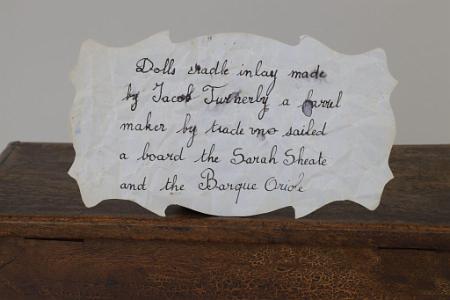 Dolls cradle inlay made
by Jacob Turnerby a barrel
maker by trade who sailed
a board the Sarah Sheate
and the Barque Oriole